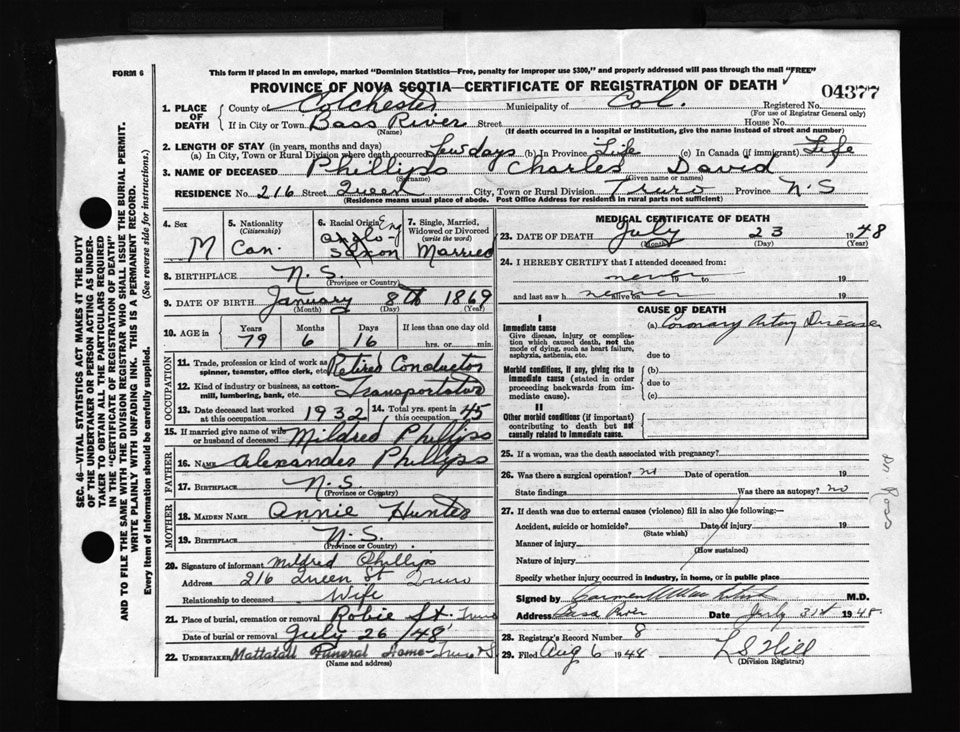 FORM 6
This form if placed in an envelope, marked "Dominion Statistics—Free, penalty for improper use $300," and properly addressed will pass through the mail "FREE"
PROVINCE OF NOVA SCOTIA—CERTIFICATE OF REGISTRATION OF DEATH
04377
1. PLACE OF DEATH { County of Colchester Municipality of Col. Registered No.
(For use of Registrar General only)
If in City or Town Bass River Street House No.
(Name) (If death occurred in a hospital or institution, give the name instead of street and number)
2. LENGTH OF STAY (in years, months and days)
(a) In City, Town or Rural Division where death occurred few days (b) In Province Life (c) In Canada (if immigrant) Life
3. NAME OF DECEASED Phillips Charles David
(Surname) (Given name or names)
RESIDENCE No. 216 Street Queen City, Town or Rural Division Truro Province N.S
(Residence means usual place of abode. Post Office Address for residents in rural parts not sufficient)
4. Sex M
5. Nationality (Citizenship) Can.
6. Racial Origin Eng Anglo-Saxon
7. Single, Married, Widowed or Divorced (write the word) Married
8. BIRTHPLACE N.S.
(Province or Country)
9. DATE OF BIRTH January 8th 1869
(Month) (Day) (Year)
10. AGE in { Years Months Days If less than one day old
79 6 16 hrs. or min.
OCCUPATION
11. Trade, profession or kind of work as spinner, teamster, office clerk, etc. Retired Conductor
12. Kind of industry or business, as cotton-mill, lumbering, bank, etc.
13. Date deceased last worked at this occupation 1932
14. Total yrs. spent in this occupation 45
15. If married give name of wife or husband of deceased Mildred Phillips
FATHER
16. NAME Alexander Phillips
17. BIRTHPLACE N.S.
(Province or Country)
MOTHER
18. MAIDEN NAME Annie Hunter
19. BIRTHPLACE N.S.
(Province or Country)
20. Signature of informant Mildred Phillips
Address 216 Queen St Truro
Relationship to deceased Wife
21. Place of burial, cremation or removal Robie St. Truro
Date of burial or removal July 26/48
22. UNDERTAKER Mattatall Funeral Home - Truro N.S.
(Name and address)
MEDICAL CERTIFICATE OF DEATH
23. DATE OF DEATH July 23 1948
(Month) (Day) (Year)
24. I HEREBY CERTIFY that I attended deceased from:
never 19 to 19
and last saw h never alive on 19
CAUSE OF DEATH
I
Immediate cause (a) Coronary Artery Disease
Give disease, injury or complication which caused death, not the mode of dying, such as heart failure, asphyxia, asthenia, etc.
due to
Morbid conditions, if any, giving rise to immediate cause (stated in order proceeding backwards from immediate cause).
(b)
due to
(c)
II
Other morbid conditions (if important) contributing to death but not causally related to immediate cause.
25. If a woman, was the death associated with pregnancy?
26. Was there a surgical operation? no Date of operation 19
State findings Was there an autopsy? no
27. If death was due to external causes (violence) fill in also the following:—
Accident, suicide or homicide? Date of injury 19
(State which)
Manner of injury
(How sustained)
Nature of injury
Specify whether injury occurred in industry, in home, or in public place
Signed by M.D.
Address Bass River Date July 31st 1948
28. Registrar's Record Number 8
29. Filed Aug 6 1948 L S Hill
(Division Registrar)
Dr Ross
SEC. 46—VITAL STATISTICS ACT MAKES IT THE DUTY
OF THE UNDERTAKER OR PERSON ACTING AS UNDER-
TAKER TO OBTAIN ALL THE PARTICULARS REQUIRED
IN THE "CERTIFICATE OF REGISTRATION OF DEATH"
AND TO FILE THE SAME WITH THE DIVISION REGISTRAR WHO SHALL ISSUE THE BURIAL PERMIT.
WRITE PLAINLY WITH UNFADING INK. THIS IS A PERMANENT RECORD.
Every item of information should be carefully supplied. (See reverse side for instructions.)